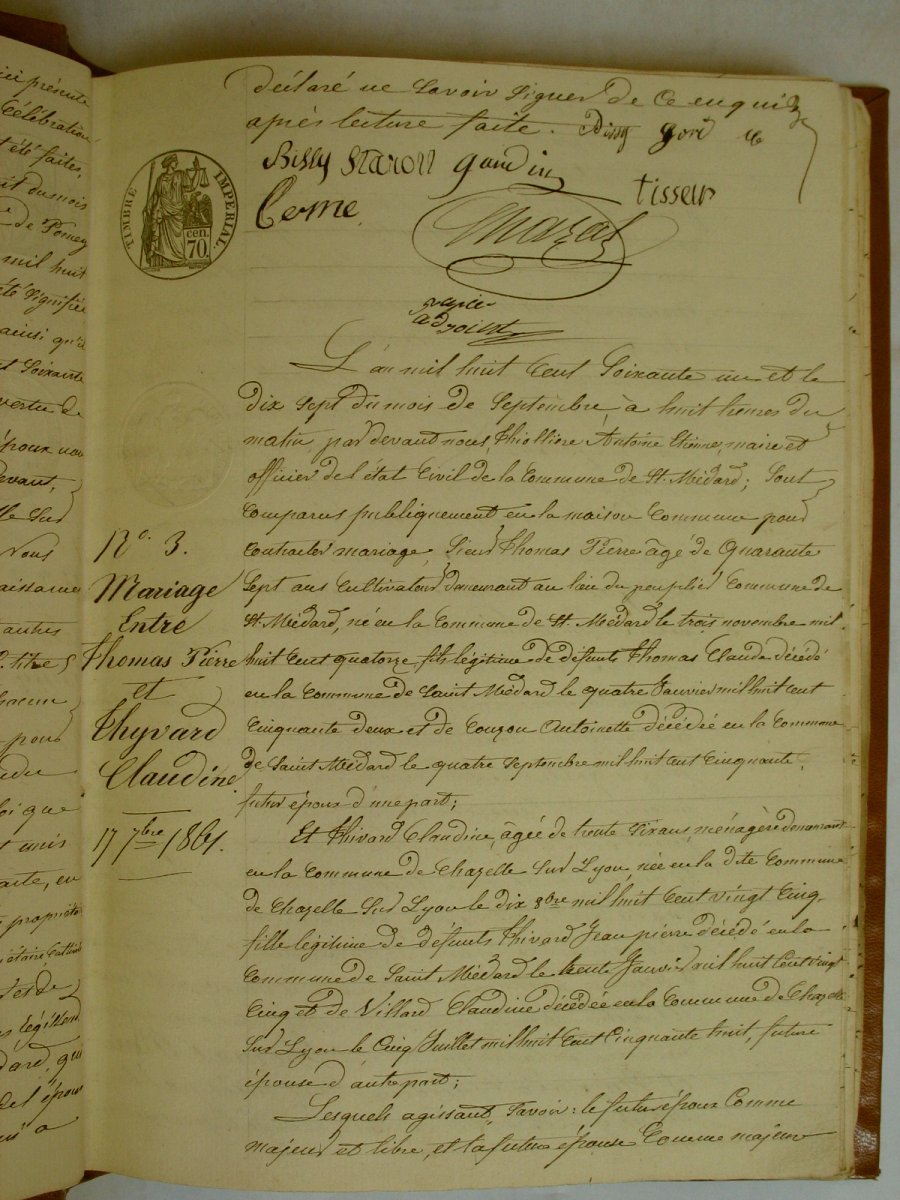 ici présente
célébration
t été faites,
it du mois
de Pomey
mil huit
été signifiée
ainsi qu'il
et Soixante
vertu de
époux nou
devant,
Vous
naissance
autres
titre
pour
loi que
et unis
arte, en
propriéta
légitim
dard, qui
del époux
déclaré ne savoir signer de ce enquis
après lecture faite. Bissy
Bissy Staron gandin tisseur
Cerne
Mazas
adjoint
TIMBRE IMPERIAL.
cen.
70.
L'an mil huit Cent Soixante un et le
dix sept du mois de Septembre, à huit heures du
matin, par devant nous, Thiollière Antoine Etienne, maire et
officier de l'état Civil de la Commune de St. Médard; Sont
Comparus publiquement en la maison Commune pour
Contracter mariage, Sieur Thomas Pierre âgé de Quarante
Sept ans Cultivateur demeurant au lieu du peuplier Commune de
St. Médard, né en la Commune de St. Médard le trois novembre mil
huit Cent quatorze fils légitime de défunts Thomas Claude décédé
en la Commune de Saint Médard le quatre Janvier mil huit Cent
Cinquante deux et de Couzon Antoinette décédée en la Commune
de Saint Médard le quatre Septembre mil huit Cent Cinquante,
futur époux d'une part;
Et Thivard Claudine, âgée de trente Six ans, ménagère demeurant
en la Commune de Chazelle Sur Lyon, née en la dite Commune
de Chazelle Sur Lyon le dix 8bre mil huit Cent vingt Cinq
fille légitime de défunts Thivard Jean pierre décédé en la
Commune de Saint Médard le trente Janvier mil huit Cent vingt
Cinq et de Villard Claudine décédée en la Commune de Chazelle
Sur Lyon le Cinq Juillet mil huit Cent Cinquante huit, future
épouse d'autre part;
Lesquels agissant, Savoir: le futur époux Comme
majeur et libre, et la future épouse Comme majeure
No. 3.
Mariage
Entre
Thomas Pierre
et
Thyvard
Claudine
17 7bre 1861.